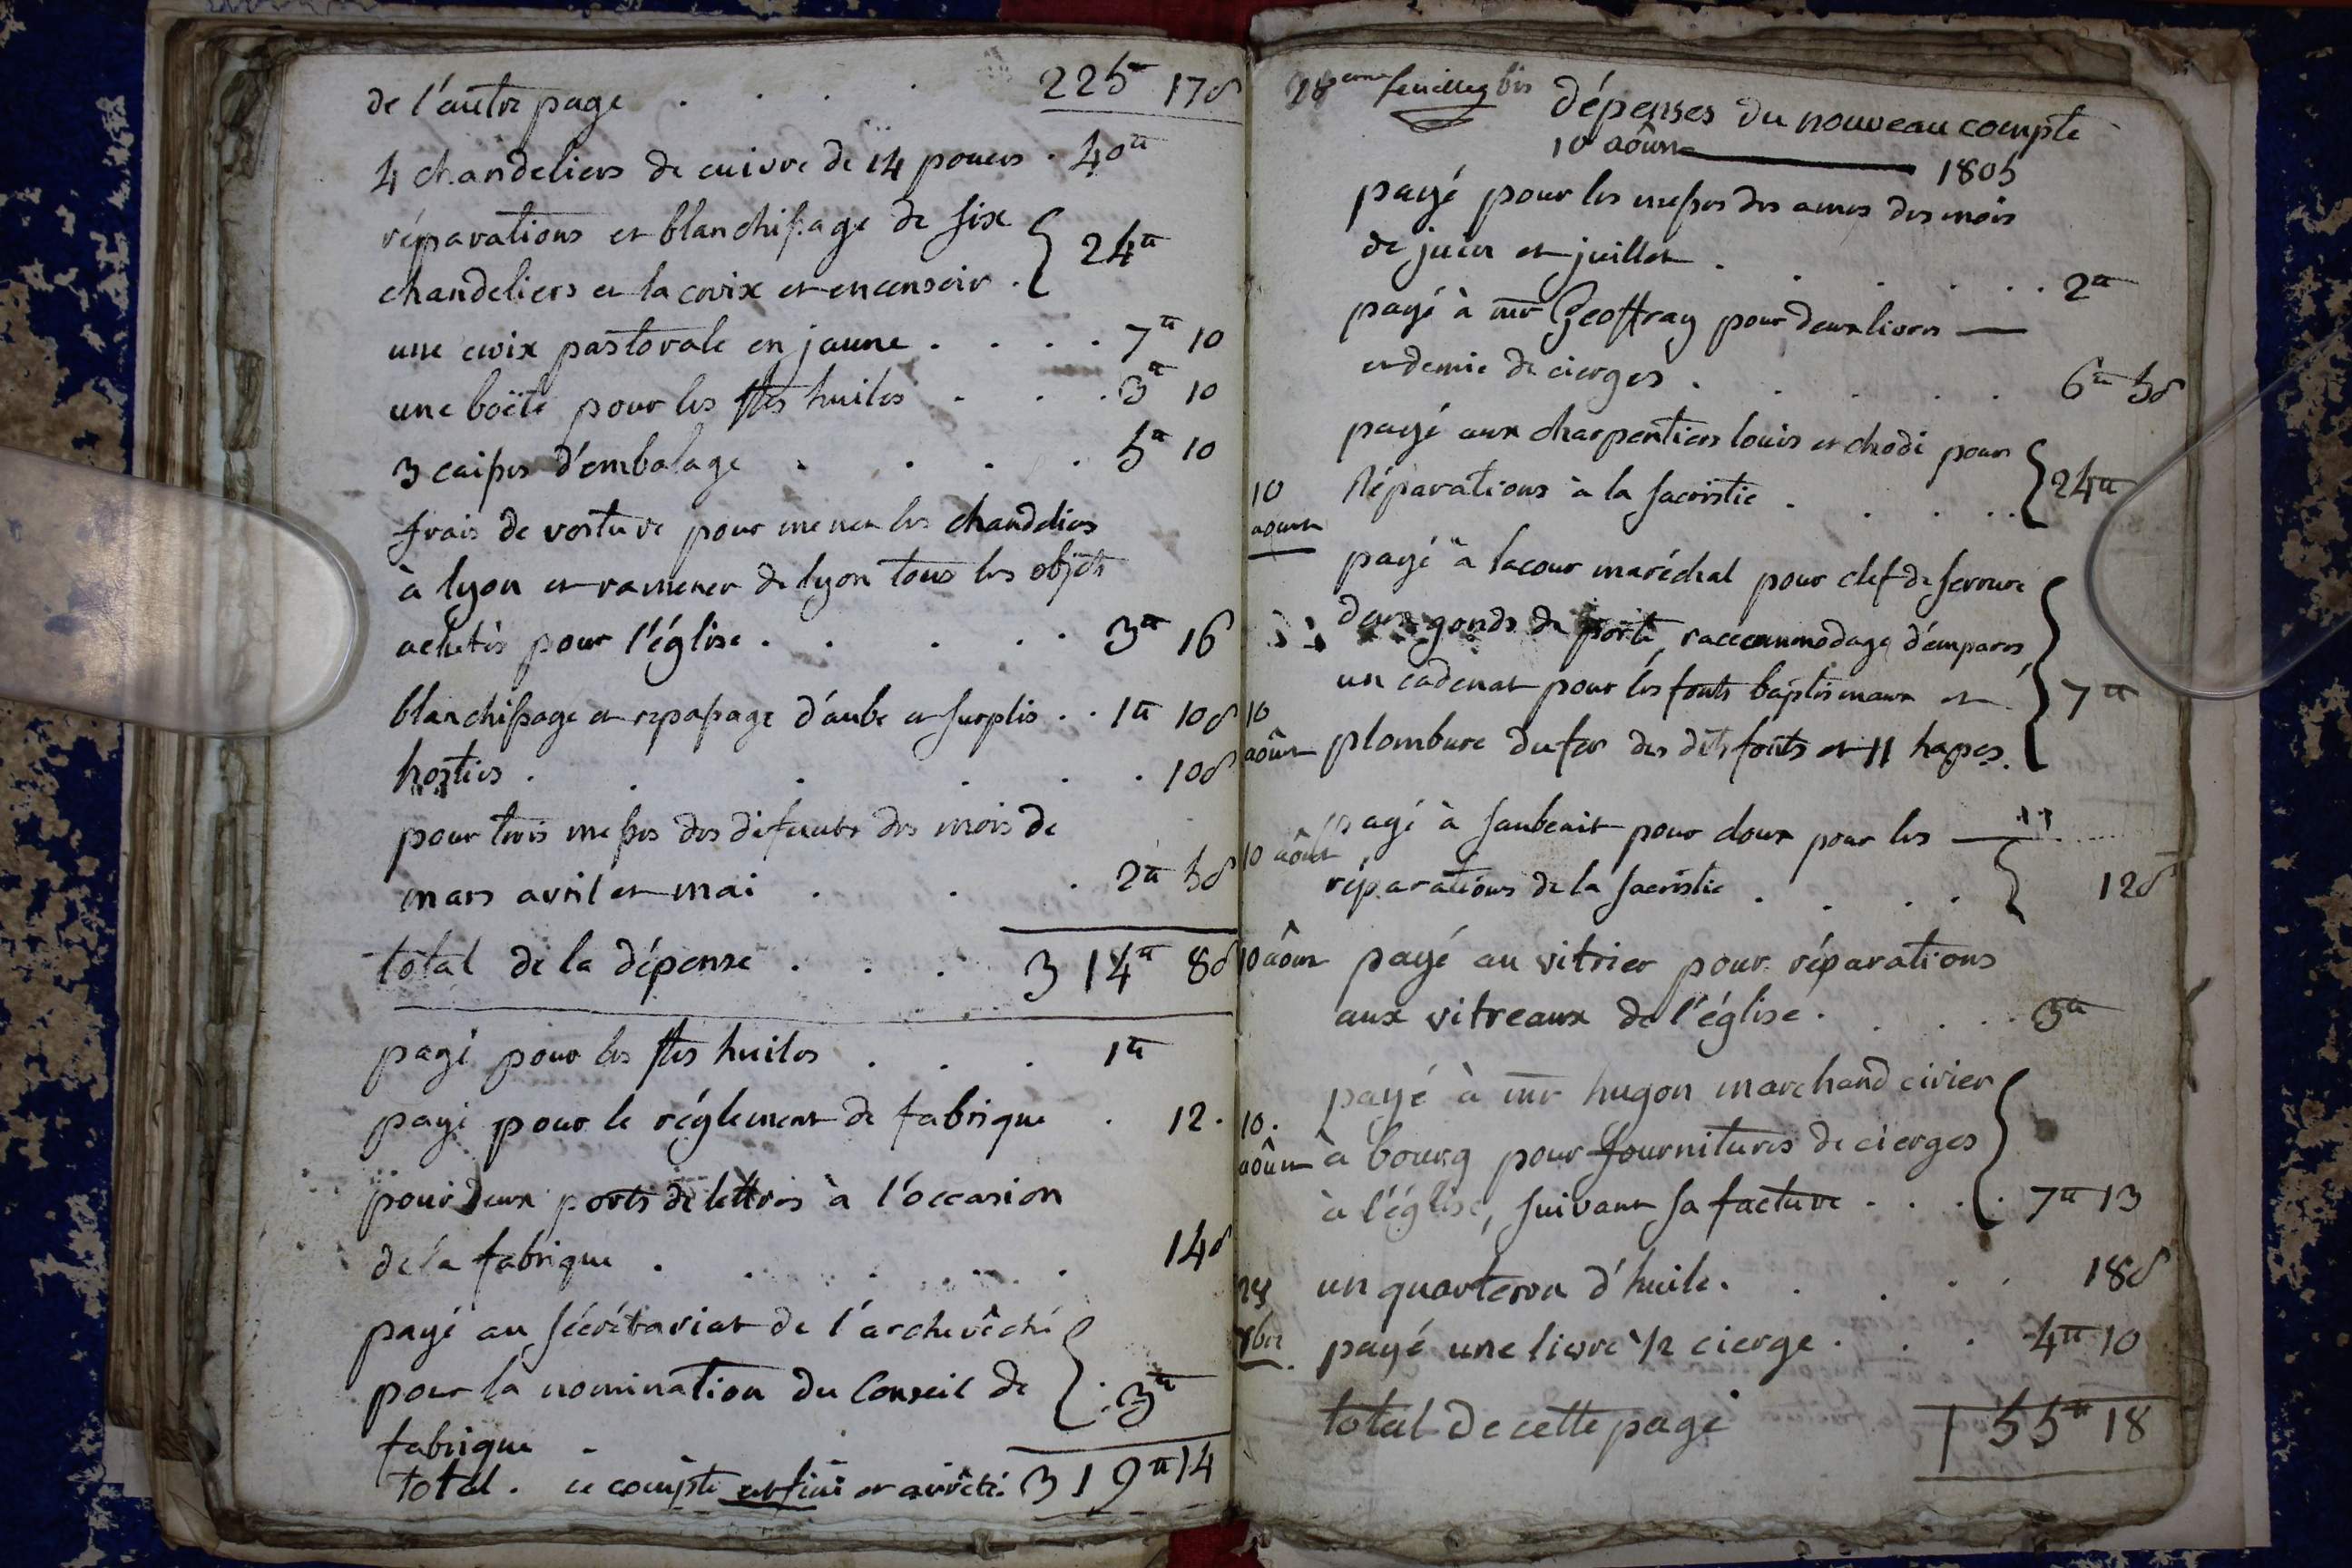 de l'autre page . . . . 225ᵗᵗ 17ˢ
4 chandeliers de cuivre de 14 pouces . 40ᵗᵗ
réparations et blanchissage de six
chandeliers et la croix et encensoir . 24ᵗᵗ
une croix pastorale en jaune . . . . 7ᵗᵗ 10
une boëte pour les stes huiles . . . 3ᵗᵗ 10
3 caisses d'embalage . . . . 5ᵗᵗ 10
frais de voiture pour mener les chandeliers
à lyon et ramener de lyon tous les objets
achetés pour l'église . . . . . 3ᵗᵗ 16
blanchissage et repassage d'aube et surplis . . 1ᵗᵗ 10ˢ
hosties . . . . . . 10ˢ
pour trois messes des défunts des mois de
mars avril et mai . . . 2ᵗᵗ 5ˢ
total de la dépense . . . 314ᵗᵗ 8ˢ
payé pour les stes huiles . . . 1ᵗᵗ
payé pour le réglement de fabrique . 12 .
pour deux ports de lettres à l'occasion
de la fabrique . . . . . 14ˢ
payé au sécrétariat de l'archevêché
pour la nomination du Conseil de . 3ᵗᵗ
fabrique .
total . ce compte est fini et arrêté . 319ᵗᵗ 14
28eme feuillet bis
dépenses du nouveau compte
10 aôust 1805
payé pour les messes des ames des mois
de juin et juillet . . . . . . 2ᵗᵗ
payé à mr Geoffray pour deux livres
et demie de cierges . . . . . 6ᵗᵗ 5ˢ
payé aux charpentiers louis et chodi pour
10 aoust réparations à la sacristie . . . . . 24ᵗᵗ
payé à lacour maréchal pour clef de serrure
deux gonds de porte, raccommodage d'empares,
un cadenat pour les fonts baptismaux et 7ᵗᵗ
10 aôust plombure du fer des dits fonts et 11 hapes .
10 aôust payé à jaubenit pour cloux pour les
réparations de la sacristie . . . . 12ˢ
10 aôust payé au vitrier pour réparations
aux vitreaux de l'église . . . . . 3ᵗᵗ
payé à mr hugon marchand cirier
10 . aôust à bourg pour fournitures de cierges
à l'église, suivant sa facture . . . . 7ᵗᵗ 13
un quarteron d'huile . . . . . 18ˢ
payé une livre 1/2 cierge . . . 4ᵗᵗ 10
total de cette page 55ᵗᵗ 18